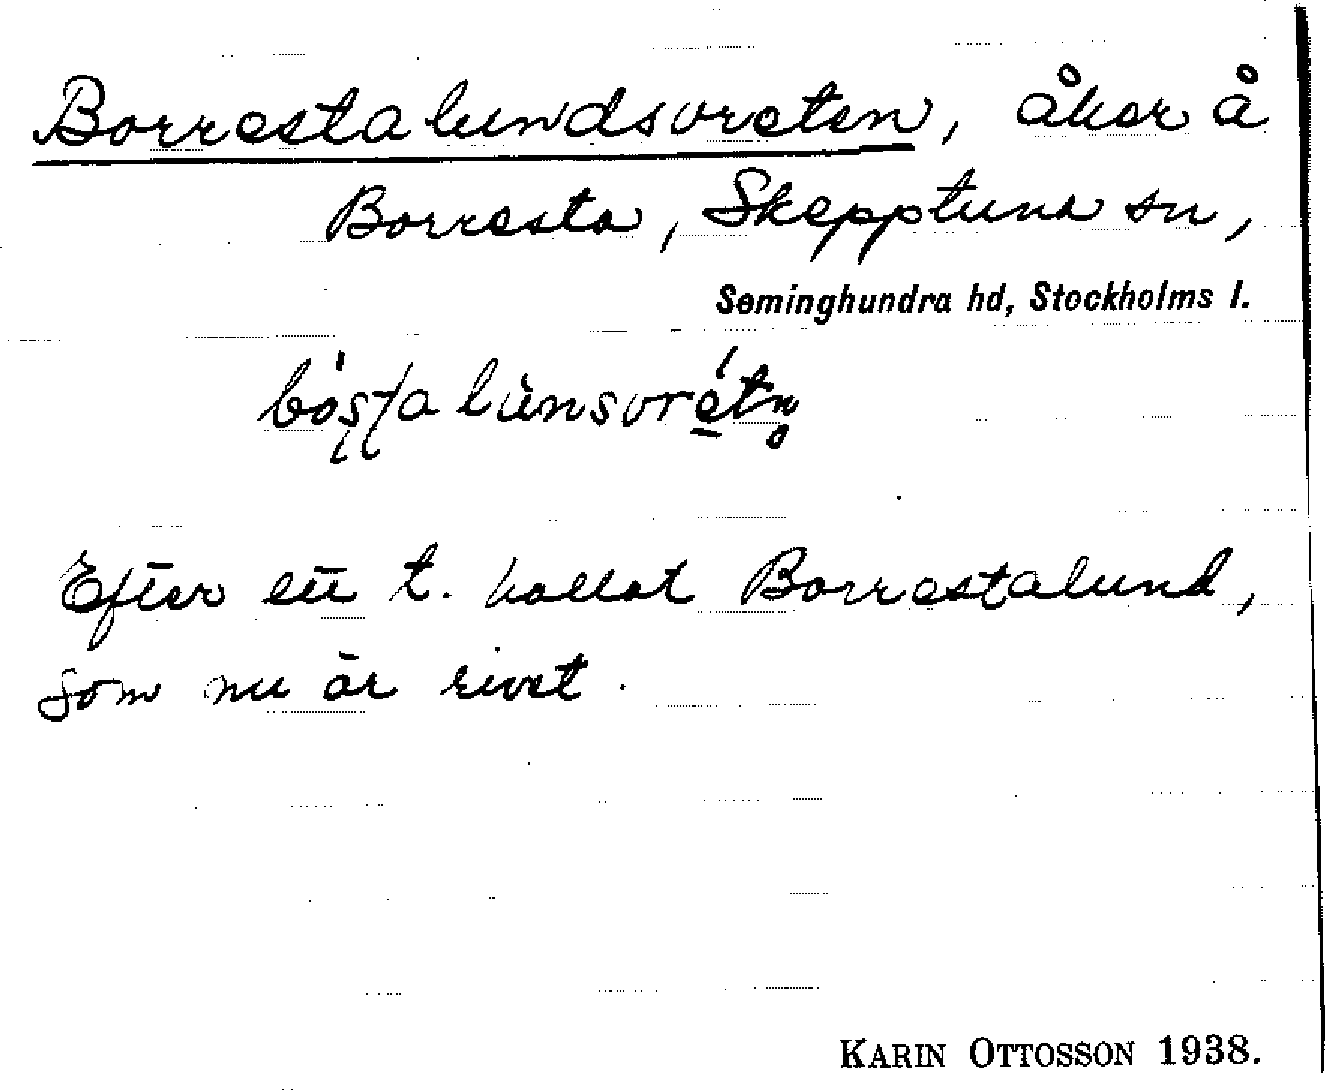 Borrestalundsvreten, åker å
Borresta, Skepptuna sn,
Seminghundra hd, Stockholms l.
Efter ett t. kallat Borrestalund,
som nu är rivet.
KARIN OTTOSSON 1938.